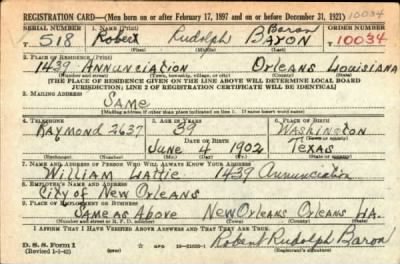 REGISTRATION CARD—(Men born on or after February 17, 1897 and on or before December 31, 1921) 10034
SERIAL NUMBER 1. NAME (Print) ORDER NUMBER
518 Robert Rudolph Baron Baron 10034
(First) (Middle) (Last)
2. PLACE OF RESIDENCE (Print)
1439 Annunciation Orleans Louisiana
(Number and street) (Town, township, village, or city) (County) (State)
[THE PLACE OF RESIDENCE GIVEN ON THE LINE ABOVE WILL DETERMINE LOCAL BOARD
JURISDICTION; LINE 2 OF REGISTRATION CERTIFICATE WILL BE IDENTICAL]
3. MAILING ADDRESS
Same
[Mailing address if other than place indicated on line 2. If same insert word same]
4. TELEPHONE 5. AGE IN YEARS 6. PLACE OF BIRTH
Raymond 2637 39 Washington
DATE OF BIRTH (Town or county)
June 4 1902 Texas
(Exchange) (Number) (Mo.) (Day) (Yr.) (State or country)
7. NAME AND ADDRESS OF PERSON WHO WILL ALWAYS KNOW YOUR ADDRESS
William 1439 Annunciation
8. EMPLOYER'S NAME AND ADDRESS
City of New Orleans
9. PLACE OF EMPLOYMENT OR BUSINESS
Same as Above New Orleans Orleans LA.
(Number and street or R. F. D. number) (Town) (County) (State)
I AFFIRM THAT I HAVE VERIFIED ABOVE ANSWERS AND THAT THEY ARE TRUE.
D. S. S. Form 1 Robert Rudolph Baron
(Revised 1-1-42) (over) (Registrant's signature)